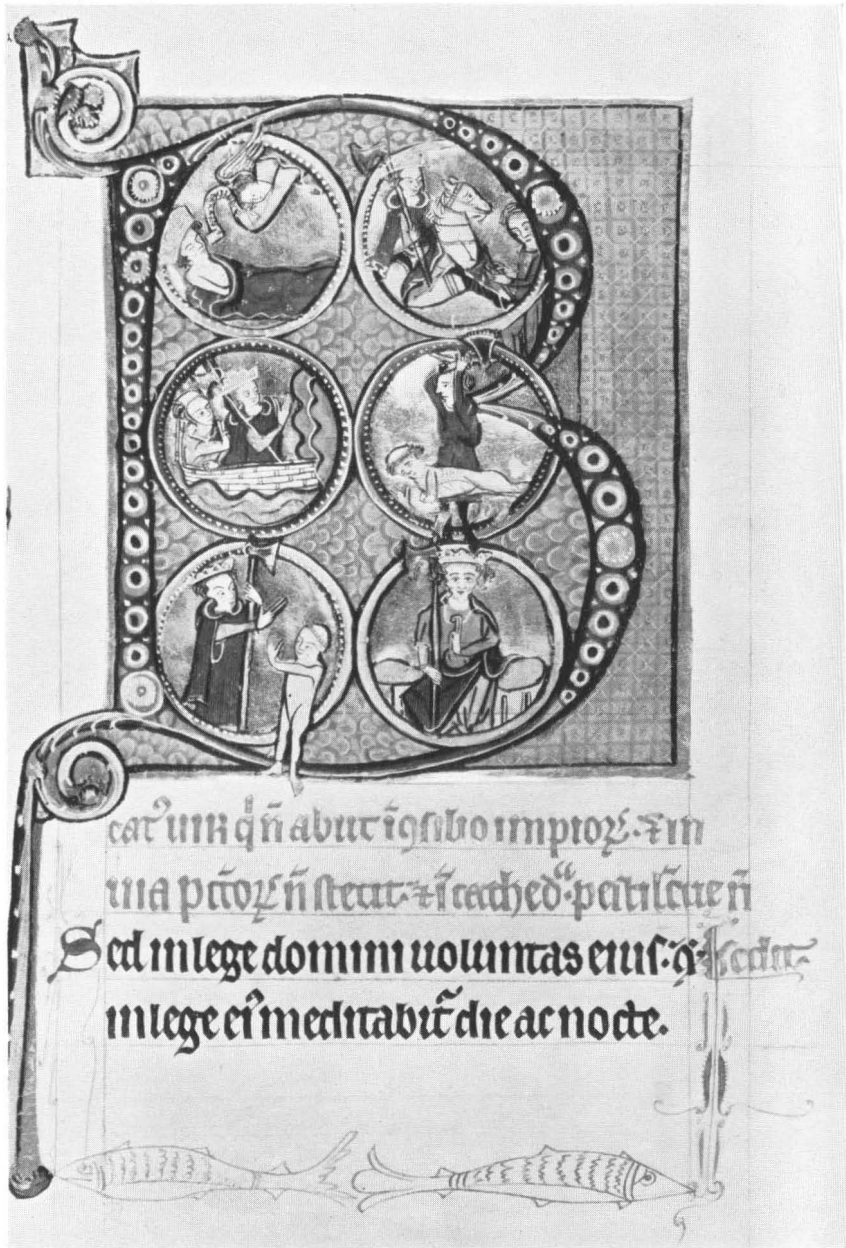 B
catꝰ uir q̇ n̄ abiit ī ꝯsilio impioꝝ· ⁊ in
uia pctōꝝ n̄ stetit· ⁊ ī cathedᵃ· pestilētie n̄
Sed in lege domini uoluntas eius· ⁊ sedit·
in lege eiꝰ meditabit᷑ die ac nocte.